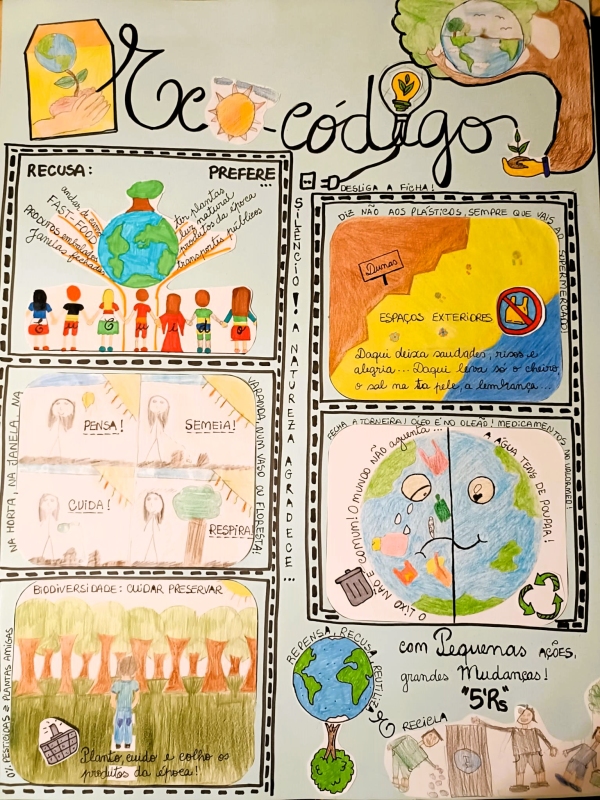 Eco-código
RECUSA:
PREFERE
...
andar de carro
FAST-FOOD
PRODUTOS embalados
Janelas fechadas
ter plantas
luz natural
produtos da época
transportes públicos
DESLIGA A FICHA!
SILÊNCIO! A NATUREZA AGRADECE...
DIZ NÃO AOS PLÁSTICOS, SEMPRE QUE VAIS AO SUPERMERCADO!
Dunas
ESPAÇOS EXTERIORES
Daqui deixa saudades, risos e
alegria... Daqui leva só o cheiro,
o sal na tua pele, a lembrança...
NA HORTA, NA JANELA, NA
VARANDA, NUM VASO OU FLORESTA!
PENSA!
SEMEIA!
CUIDA!
RESPIRA!
FECHA A TORNEIRA! ÓLEO É NO OLEÃO! MEDICAMENTOS NO VALORMED!
O LIXO NÃO É COMUM! O MUNDO NÃO aguenta...
A ÁGUA TENS DE POUPAR!
BIODIVERSIDADE: CUIDAR PRESERVAR
0% PESTICIDAS & PLANTAS AMIGAS
Planto, cuido e colho os
produtos da época!
REPENSA, RECUSA, REUTILIZA
RECICLA
com Pequenas AÇÕES,
grandes Mudanças!
"5'Rs"